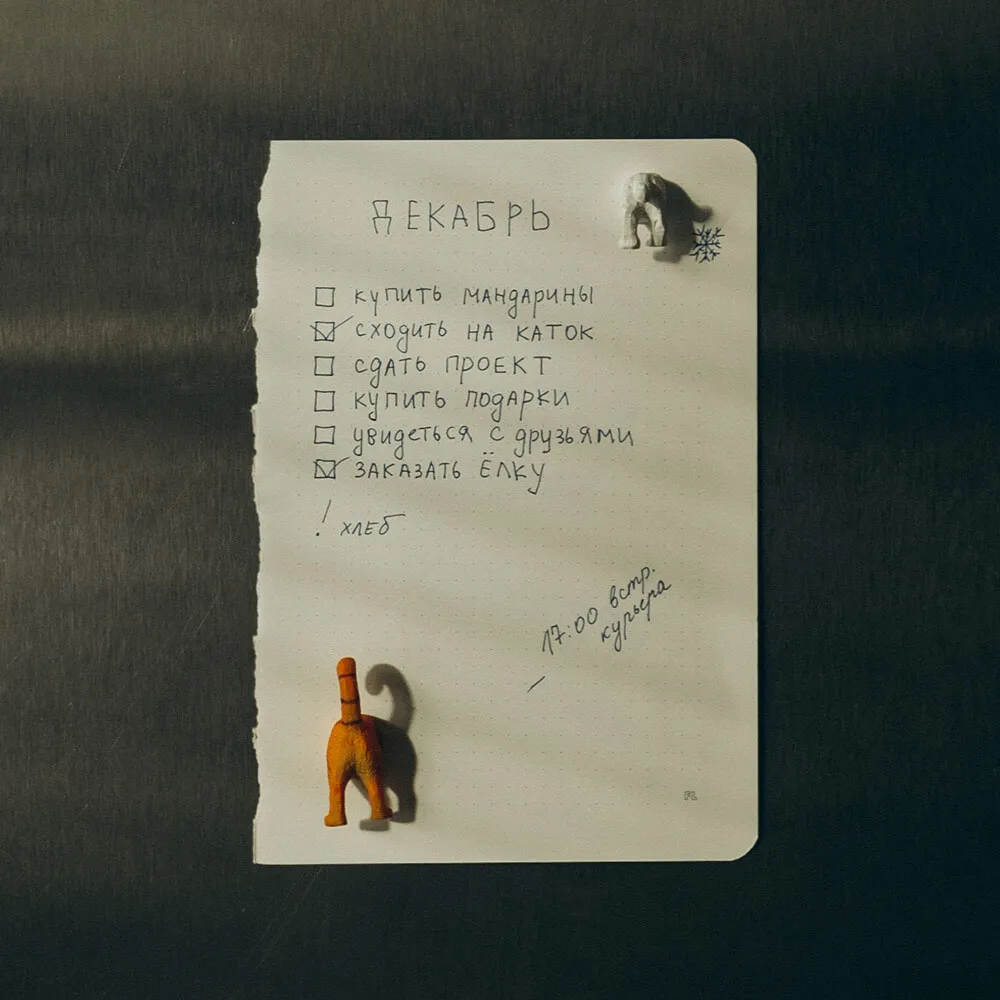 ДЕКАБРЬ
☐ купить мандарины
☑ сходить на каток
☐ сдать проект
☐ купить подарки
☐ увидеться с друзьями
☑ заказать ёлку
! хлеб
17:00 встр.
курьера
FL